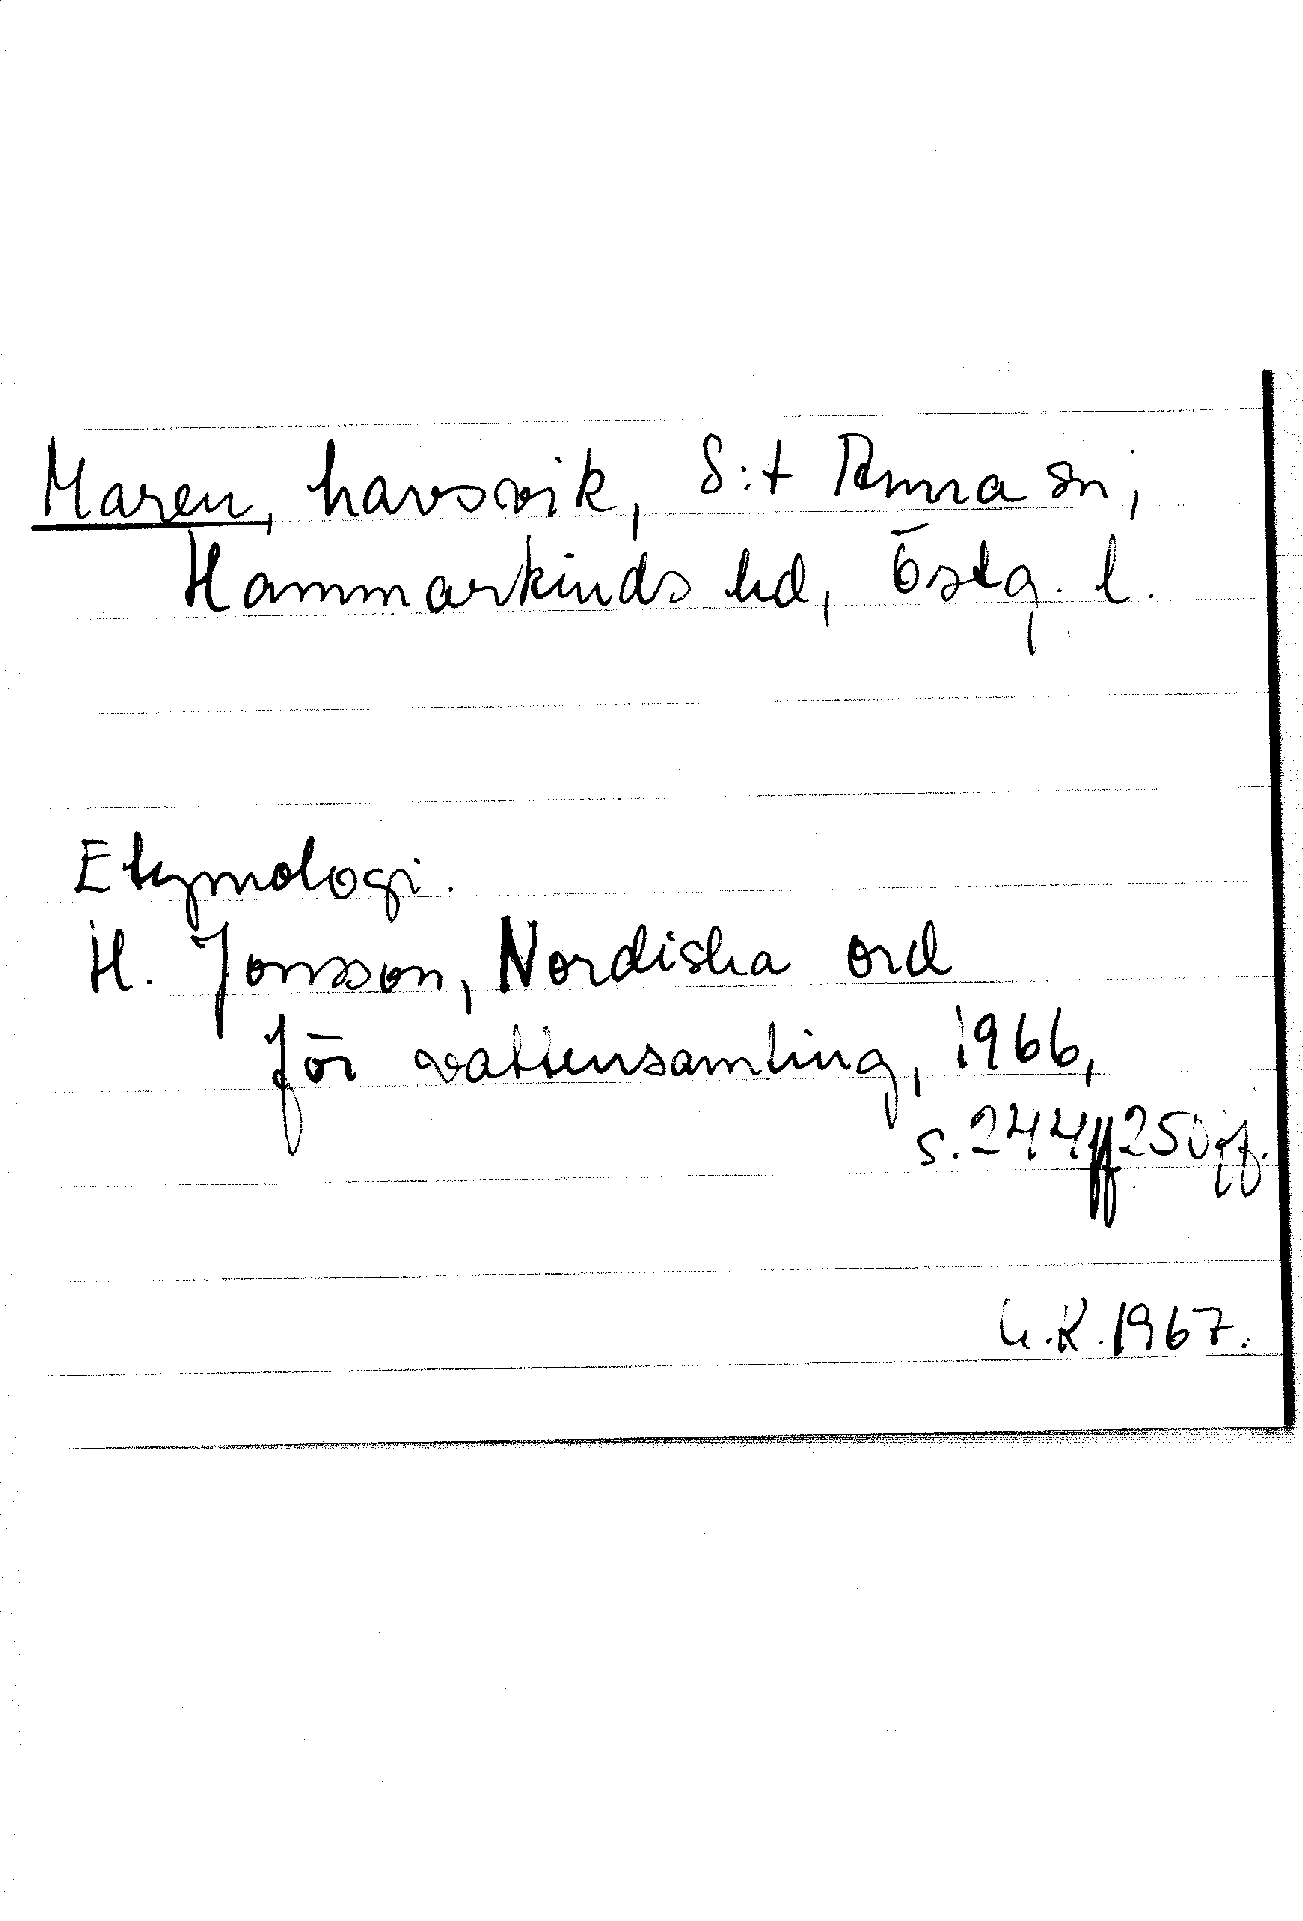 Maren, havsvik, S:t Anna sn,
Hammarkinds hd, Östg. l.
Etymologi.
H. Jonsson, Nordiska ord
för vattensamling, 1966,
s. 244ff 250ff.
G.K. 1967.